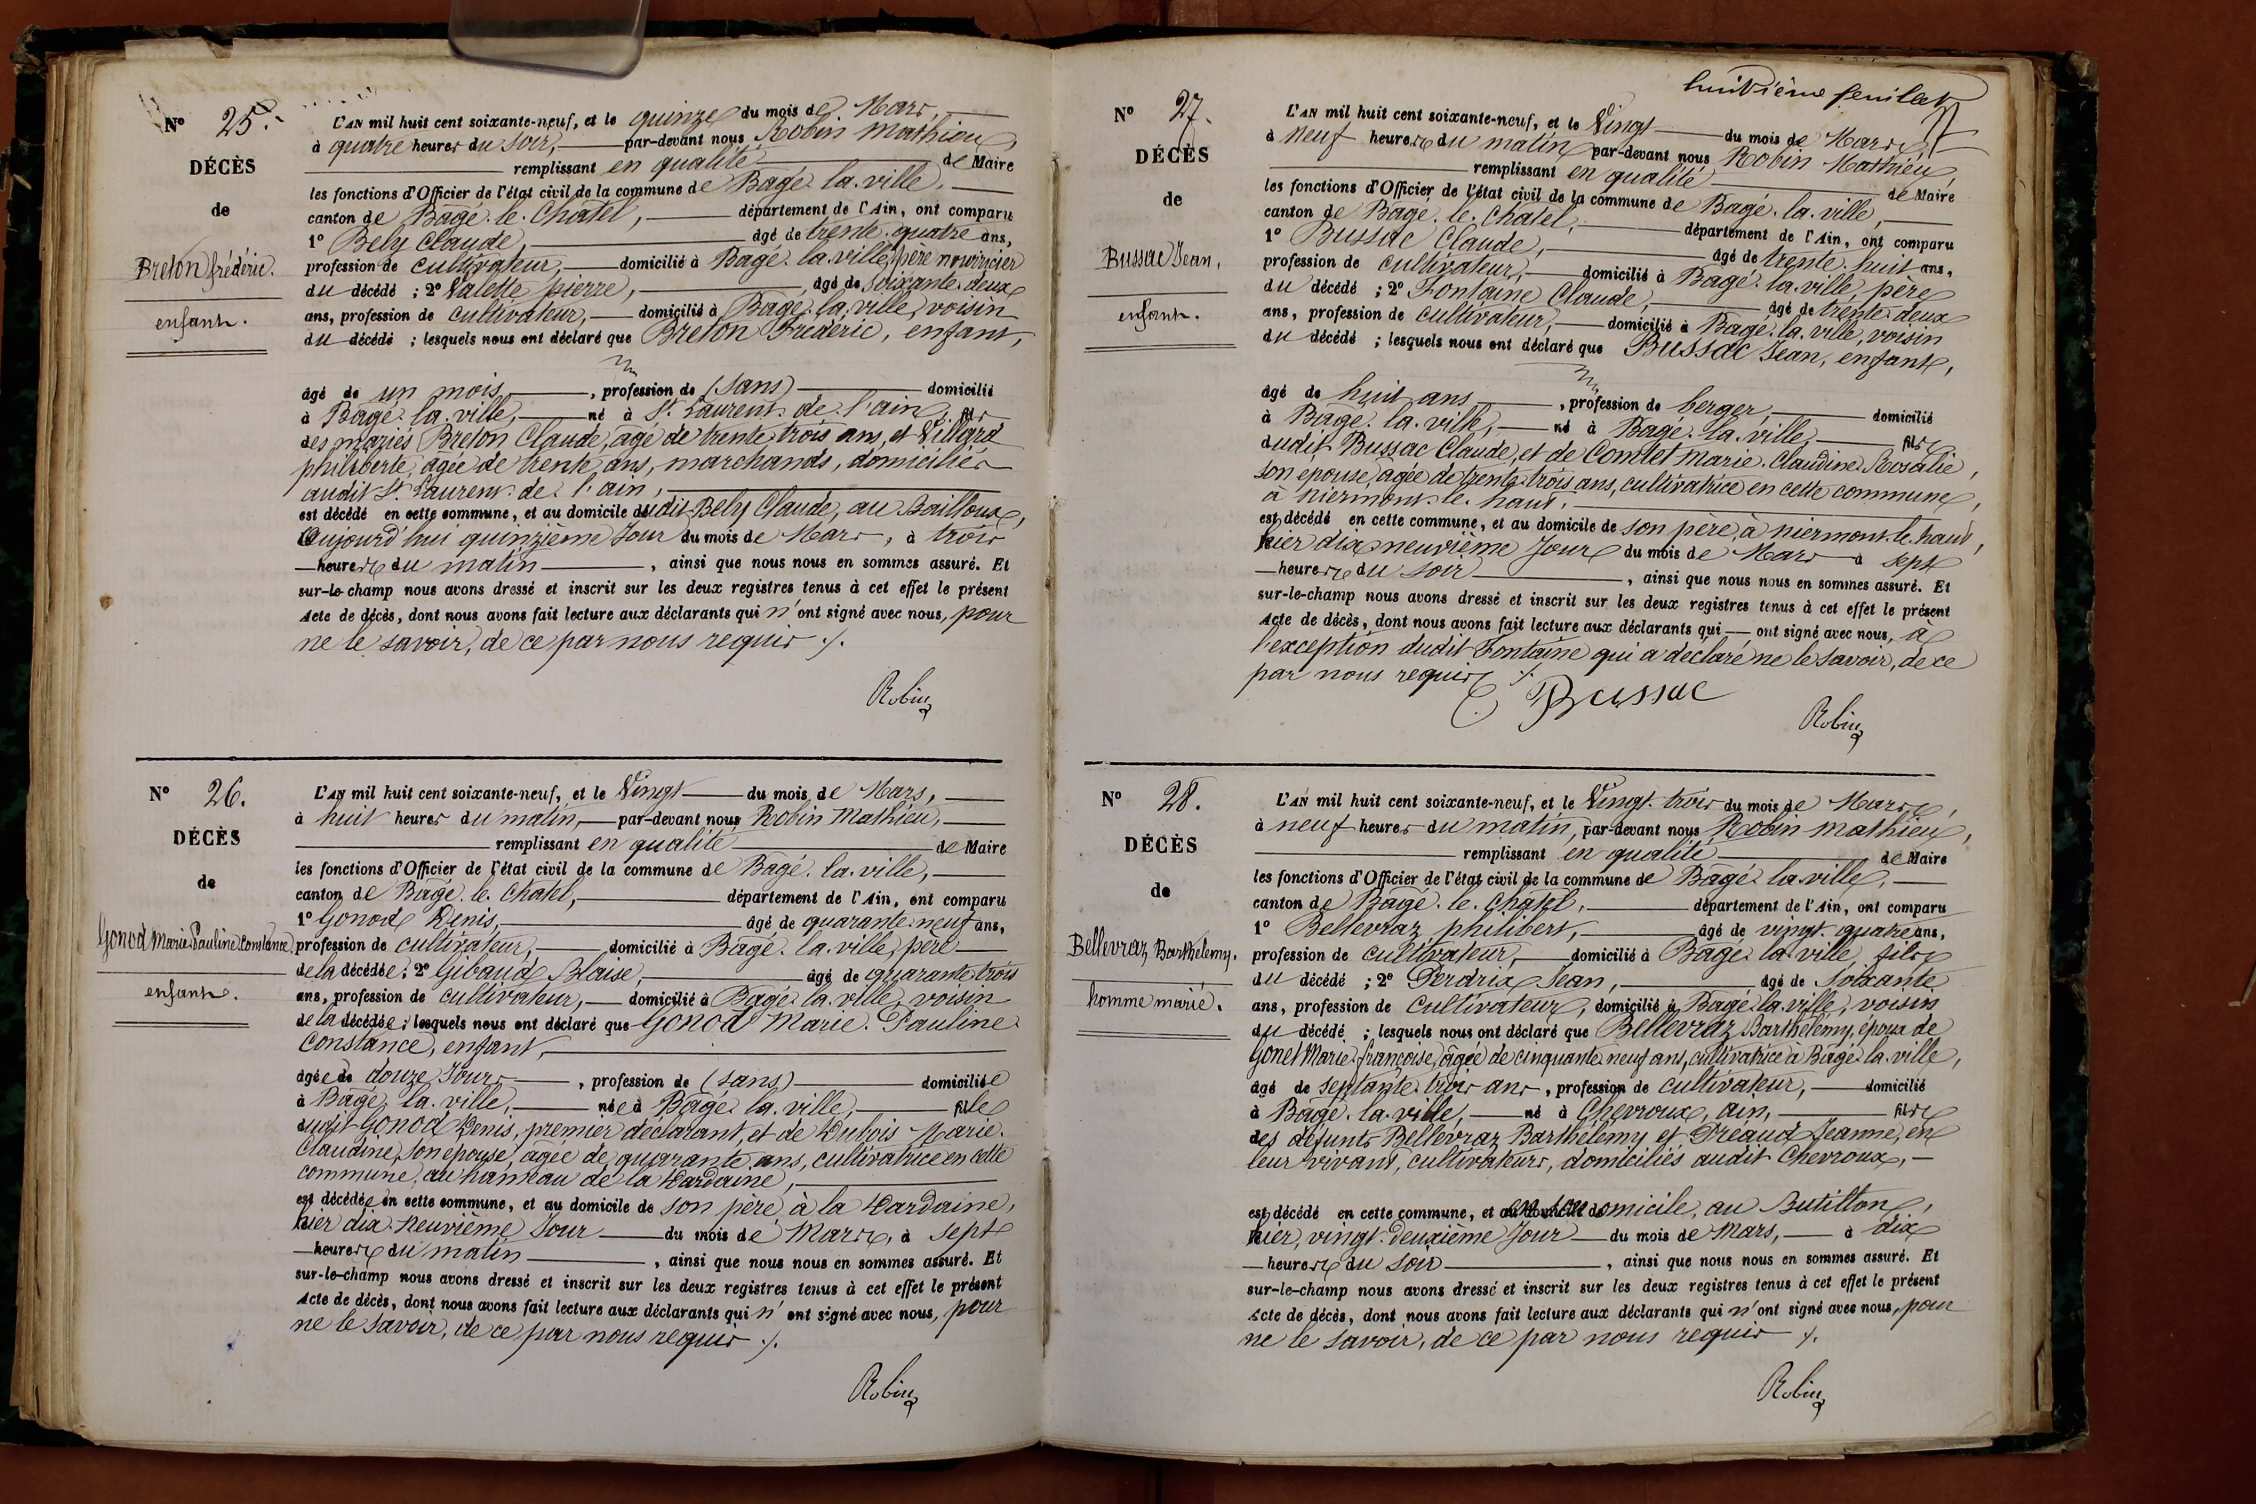 N° 25.
DÉCÈS
de
Breton frédéric.
enfant.
L'AN mil huit cent soixante-neuf, et le quinze du mois de Mars,
à quatre heures du soir, par-devant nous Robin Mathieu,
remplissant en qualité de Maire
les fonctions d'Officier de l'état civil de la commune de Bagé-la-ville,
canton de Bagé-le-Chatel, département de l'Ain, ont comparu
1° Bely Claude, âgé de trente-quatre ans,
profession de cultivateur, domicilié à Bagé-la-ville, père nourricier
du décédé ; 2° Valette pierre, âgé de soixante-deux
ans, profession de cultivateur, domicilié à Bagé-la-ville, voisin
du décédé ; lesquels nous ont déclaré que Breton Frédéric, enfant,
âgé de un mois, profession de (sans) domicilié
à Bagé-la-ville, né à St. Laurent-de-l'ain, fils
des mariés Breton Claude, âgé de trente-trois ans, et Villard
philiberte, âgée de trente ans, marchands, domiciliés
audit St. Laurent-de-l'ain,
est décédé en cette commune, et au domicile dudit Bely Claude, au Bailloux,
aujourd'hui quinzième Jour du mois de Mars, à trois
heures du matin, ainsi que nous nous en sommes assuré. Et
sur-le-champ nous avons dressé et inscrit sur les deux registres tenus à cet effet le présent
Acte de décès, dont nous avons fait lecture aux déclarants qui n'ont signé avec nous, pour
ne le savoir, de ce par nous requis ./.
Robin
N° 26.
DÉCÈS
de
Gonod Marie-Pauline Constance
enfant.
L'AN mil huit cent soixante-neuf, et le Vingt du mois de Mars,
à huit heures du matin, par-devant nous Robin Mathieu,
remplissant en qualité de Maire
les fonctions d'Officier de l'état civil de la commune de Bagé-la-ville,
canton de Bagé-le-Chatel, département de l'Ain, ont comparu
1° Gonod Denis, âgé de quarante-neuf ans,
profession de cultivateur, domicilié à Bagé-la-ville, père
de la décédée ; 2° Gibaud Blaise, âgé de quarante-trois
ans, profession de cultivateur, domicilié à Bagé-la-ville, voisin
de la décédée ; lesquels nous ont déclaré que Gonod Marie-Pauline
Constance, enfant,
âgée de douze Jours, profession de (sans) domiciliée
à Bagé-la-ville, née à Bagé-la-ville, fille
dudit Gonod Denis, premier déclarant, et de Dubois Marie-
Claudine, son épouse, âgée de quarante ans, cultivatrice en cette
commune, au hameau de la Cardaine,
est décédée en cette commune, et au domicile de son père, à la Cardaine,
hier dix-neuvième Jour du mois de Mars, à sept
heures du matin, ainsi que nous nous en sommes assuré. Et
sur-le-champ nous avons dressé et inscrit sur les deux registres tenus à cet effet le présent
Acte de décès, dont nous avons fait lecture aux déclarants qui n'ont signé avec nous, pour
ne le savoir, de ce par nous requis ./.
Robin
huitième feuillet
N° 27.
DÉCÈS
de
Bussac Jean,
enfant.
L'AN mil huit cent soixante-neuf, et le Vingt du mois de Mars,
à neuf heures du matin par-devant nous Robin Mathieu,
remplissant en qualité de Maire
les fonctions d'Officier de l'état civil de la commune de Bagé-la-ville,
canton de Bagé-le-Chatel, département de l'Ain, ont comparu
1° Bussac Claude, âgé de trente-huit ans,
profession de cultivateur, domicilié à Bagé-la-ville, père
du décédé ; 2° Fontaine Claude, âgé de trente-deux
ans, profession de cultivateur, domicilié à Bagé-la-ville, voisin
du décédé ; lesquels nous ont déclaré que Bussac Jean, enfant,
âgé de huit ans, profession de berger, domicilié
à Bagé-la-ville, né à Bagé-la-ville, fils
dudit Bussac Claude, et de Comtet Marie-Claudine-Rosalie,
son épouse, âgée de trente-trois ans, cultivatrice en cette commune,
à niermont-le-haut,
est décédé en cette commune, et au domicile de son père, à niermont-le-haut,
hier dix-neuvième Jour du mois de Mars à sept
heures du soir, ainsi que nous nous en sommes assuré. Et
sur-le-champ nous avons dressé et inscrit sur les deux registres tenus à cet effet le présent
Acte de décès, dont nous avons fait lecture aux déclarants qui ont signé avec nous, à
l'exception dudit Fontaine qui a déclaré ne le savoir, de ce
par nous requis ./.
C Bussac
Robin
N° 28.
DÉCÈS
de
Bellevraz Barthélemy.
homme marié.
L'AN mil huit cent soixante-neuf, et le Vingt-trois du mois de Mars,
à neuf heures du matin, par-devant nous Robin Mathieu,
remplissant en qualité de Maire
les fonctions d'Officier de l'état civil de la commune de Bagé-la-ville,
canton de Bagé-le-Chatel, département de l'Ain, ont comparu
1° Bellevraz philibert, âgé de vingt-quatre ans,
profession de cultivateur, domicilié à Bagé-la-ville, fils
du décédé ; 2° Perdrix Jean, âgé de Soixante
ans, profession de cultivateur, domicilié à Bagé-la-ville, voisin
du décédé ; lesquels nous ont déclaré que Bellevraz Barthélemy, époux de
Gonet Marie-françoise, âgée de cinquante-neuf ans, cultivatrice à Bagé-la-ville,
âgé de septante-trois ans, profession de cultivateur, domicilié
à Bagé-la-ville, né à Chevroux, ain, fils
des défunts Bellevraz Barthélemy et Préaud Jeanne, en
leur vivant, cultivateurs, domiciliés audit Chevroux,
est décédé en cette commune, et en son domicile, au Butillon,
hier, vingt-deuxième Jour du mois de Mars, à dix
heures du soir, ainsi que nous nous en sommes assuré. Et
sur-le-champ nous avons dressé et inscrit sur les deux registres tenus à cet effet le présent
Acte de décès, dont nous avons fait lecture aux déclarants qui n'ont signé avec nous, pour
ne le savoir, de ce par nous requis ./.
Robin